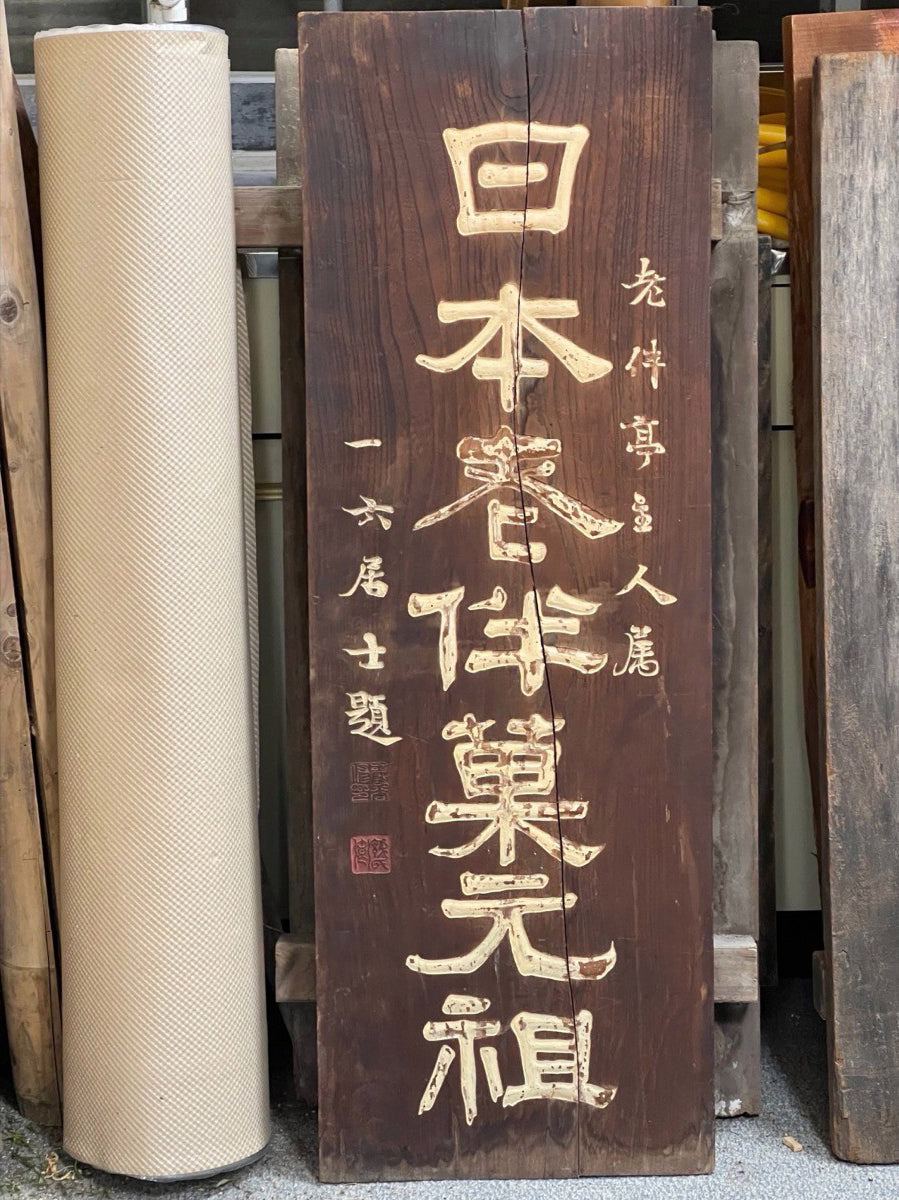 老伴亭主人属
日本老伴菓元祖
一六居士題